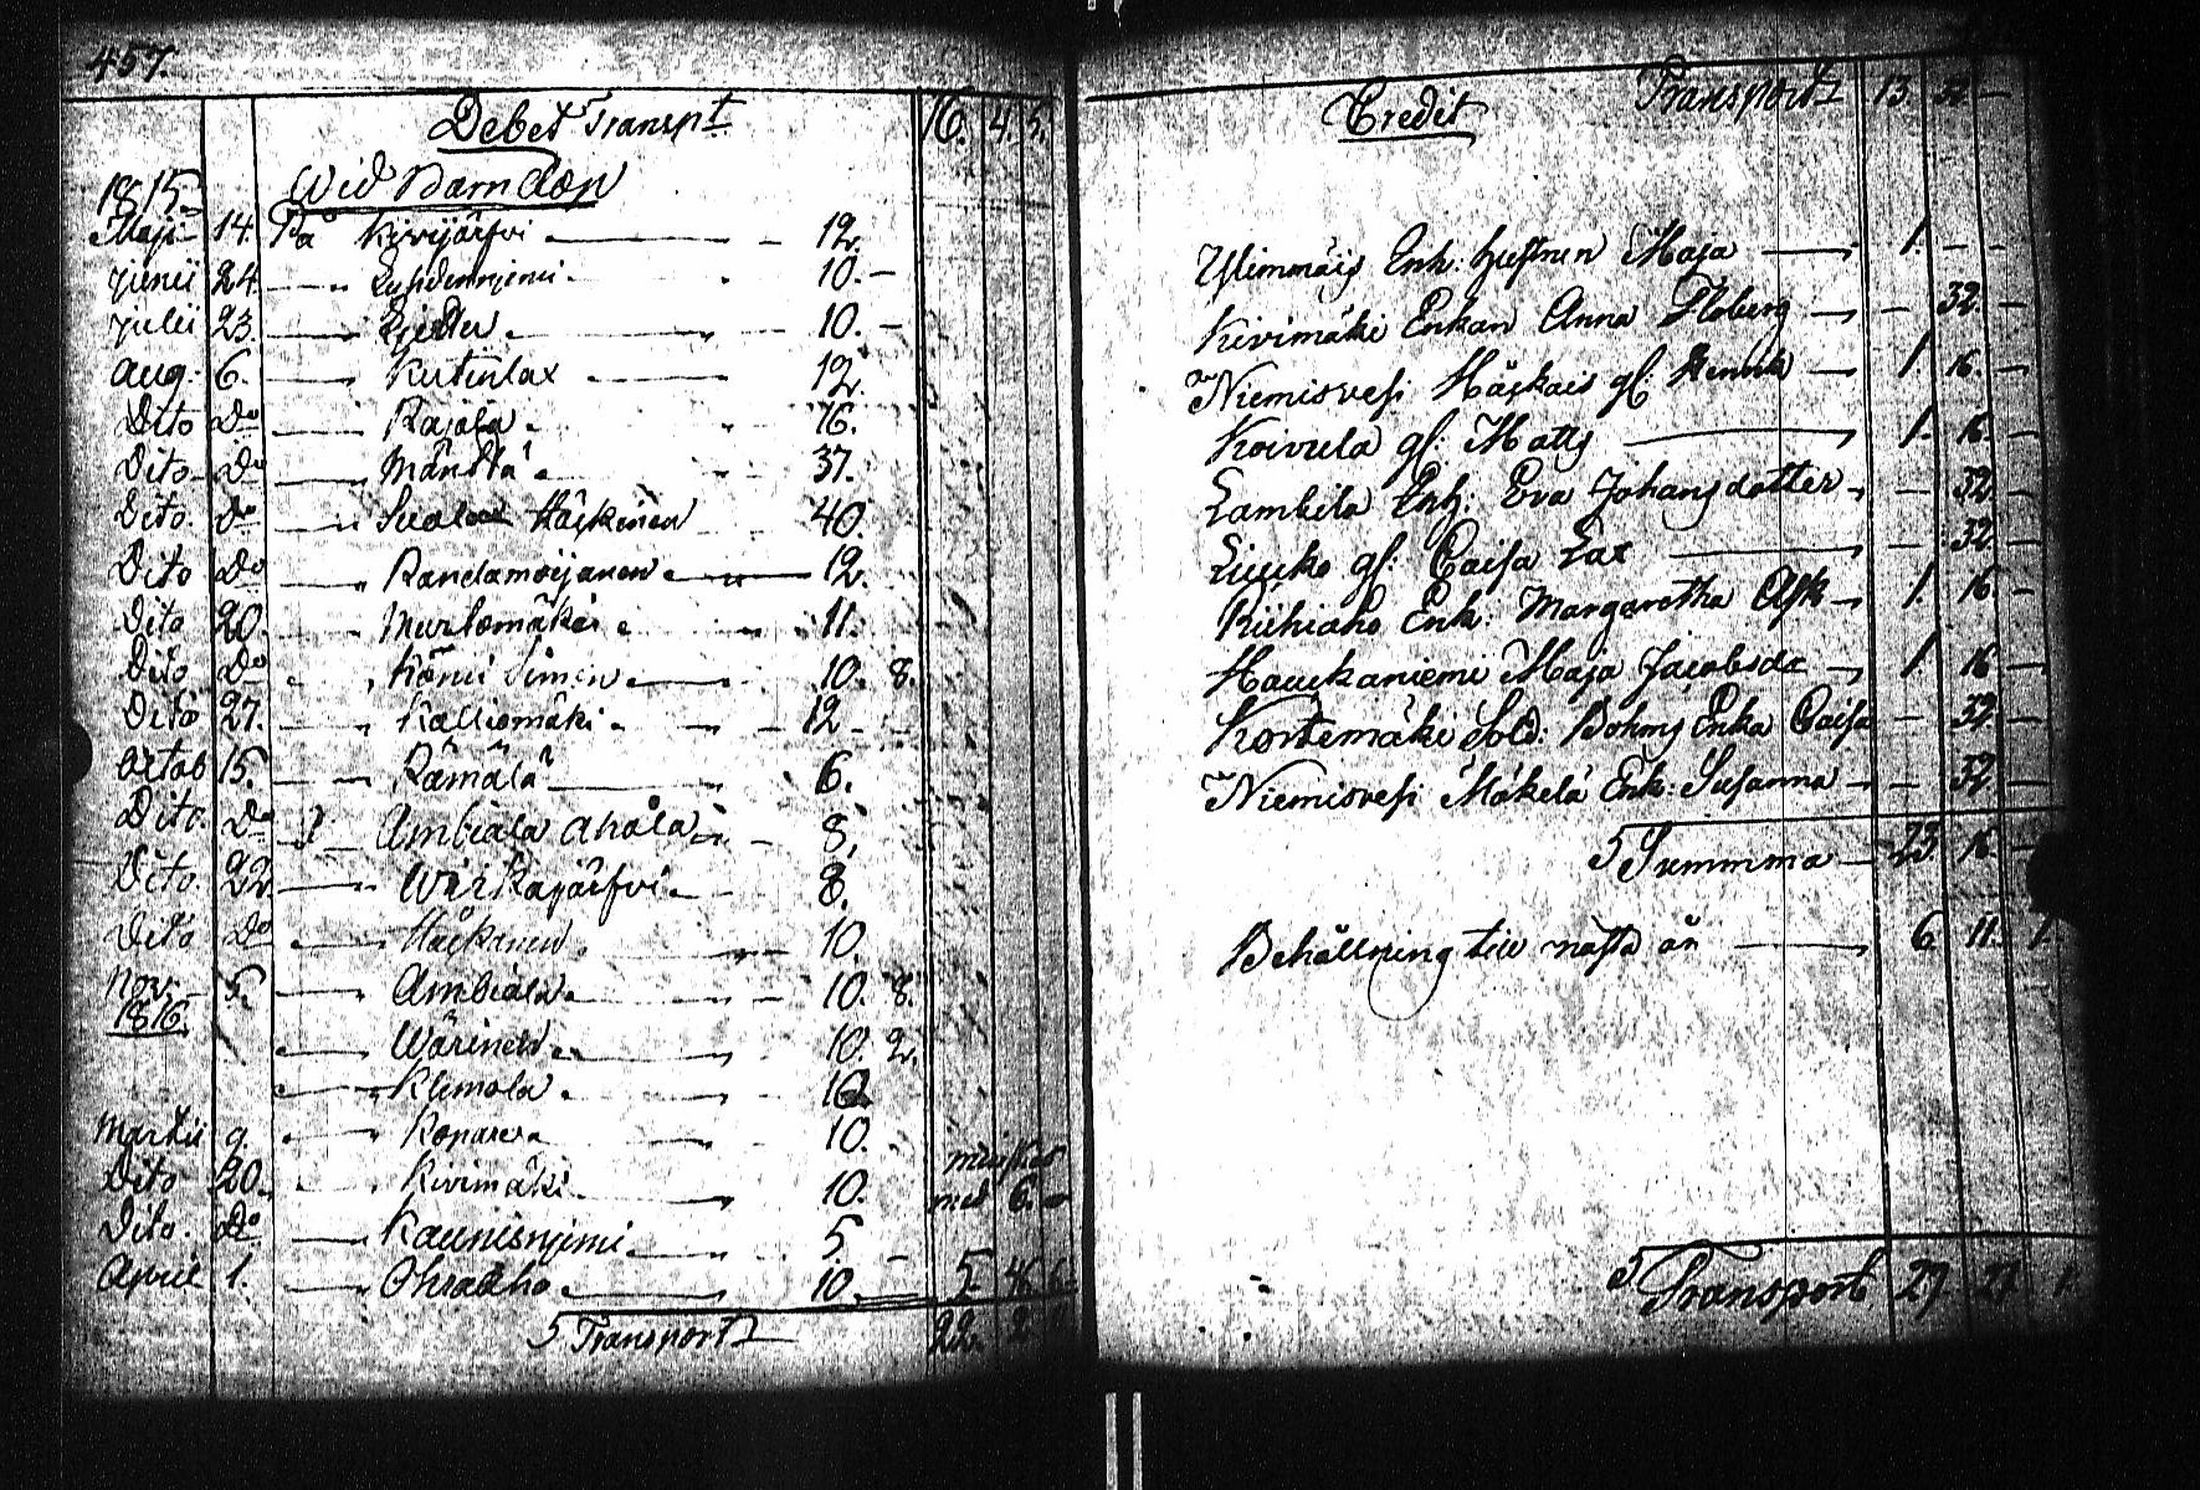 457.
Debet Transpt 16. 4. 5.
1815. Wid Barndop
Maji 14. På Kivijärfvi 12.
Junii 24. 10. —
Julii 23. 10. —
Aug: 6. Kutinlax 12.
Dito Do Rajala 16.
Dito Do Mändtä 37.
Dito. Do Häckinen 40.
Dito Do 12.
Dito 20. Murtomäki 11.
Dito Do Könii Simon 10. 8.
Dito 27. Kalliomäki 12
Octob 15. Rämälä 6.
Dito. Do Ambiala Ahola 8.
Dito. 22. Wirkajärfvi 8.
Dito Do Häckinen 10.
Nov. 5. Ambiala 10. 8.
1816.
Wärinen 10. 2.
Klimola
Martii 9. Roparen 10.
Dito 20. Kivimäki 10.
med 6.
Dito. Do Kaunisnjemi 5. —
April 1. Ohraaho 10. 5 46 6
Transport 22. 2.
Credit Transport 13. 32. —
Ylimmäis Enk: Maja 1. — —
Kivimäki Enkan Anna Floberg — 32. —
Niemisvesi Häckais gl: Henrik 1. 16. —
Koivula gl: Matts 1. 16. —
Lambila Enk: Eva Johansdotter — 32. —
Liuko gl: Caisa Lax — 32
Riihiaho Enk: Margaretha Ask 1. 16. —
Hauckaniemi Maja Jacobsdr 1. 16 —
Kortemäki Sold: Bohms Enka Caisa — 32. —
Niemisvesi Mäkelä Enk: Susanna — 32 —
Summma 23. 16. —
Behållning till nästa år 6. 11. 1.
Transport 29 27 1.